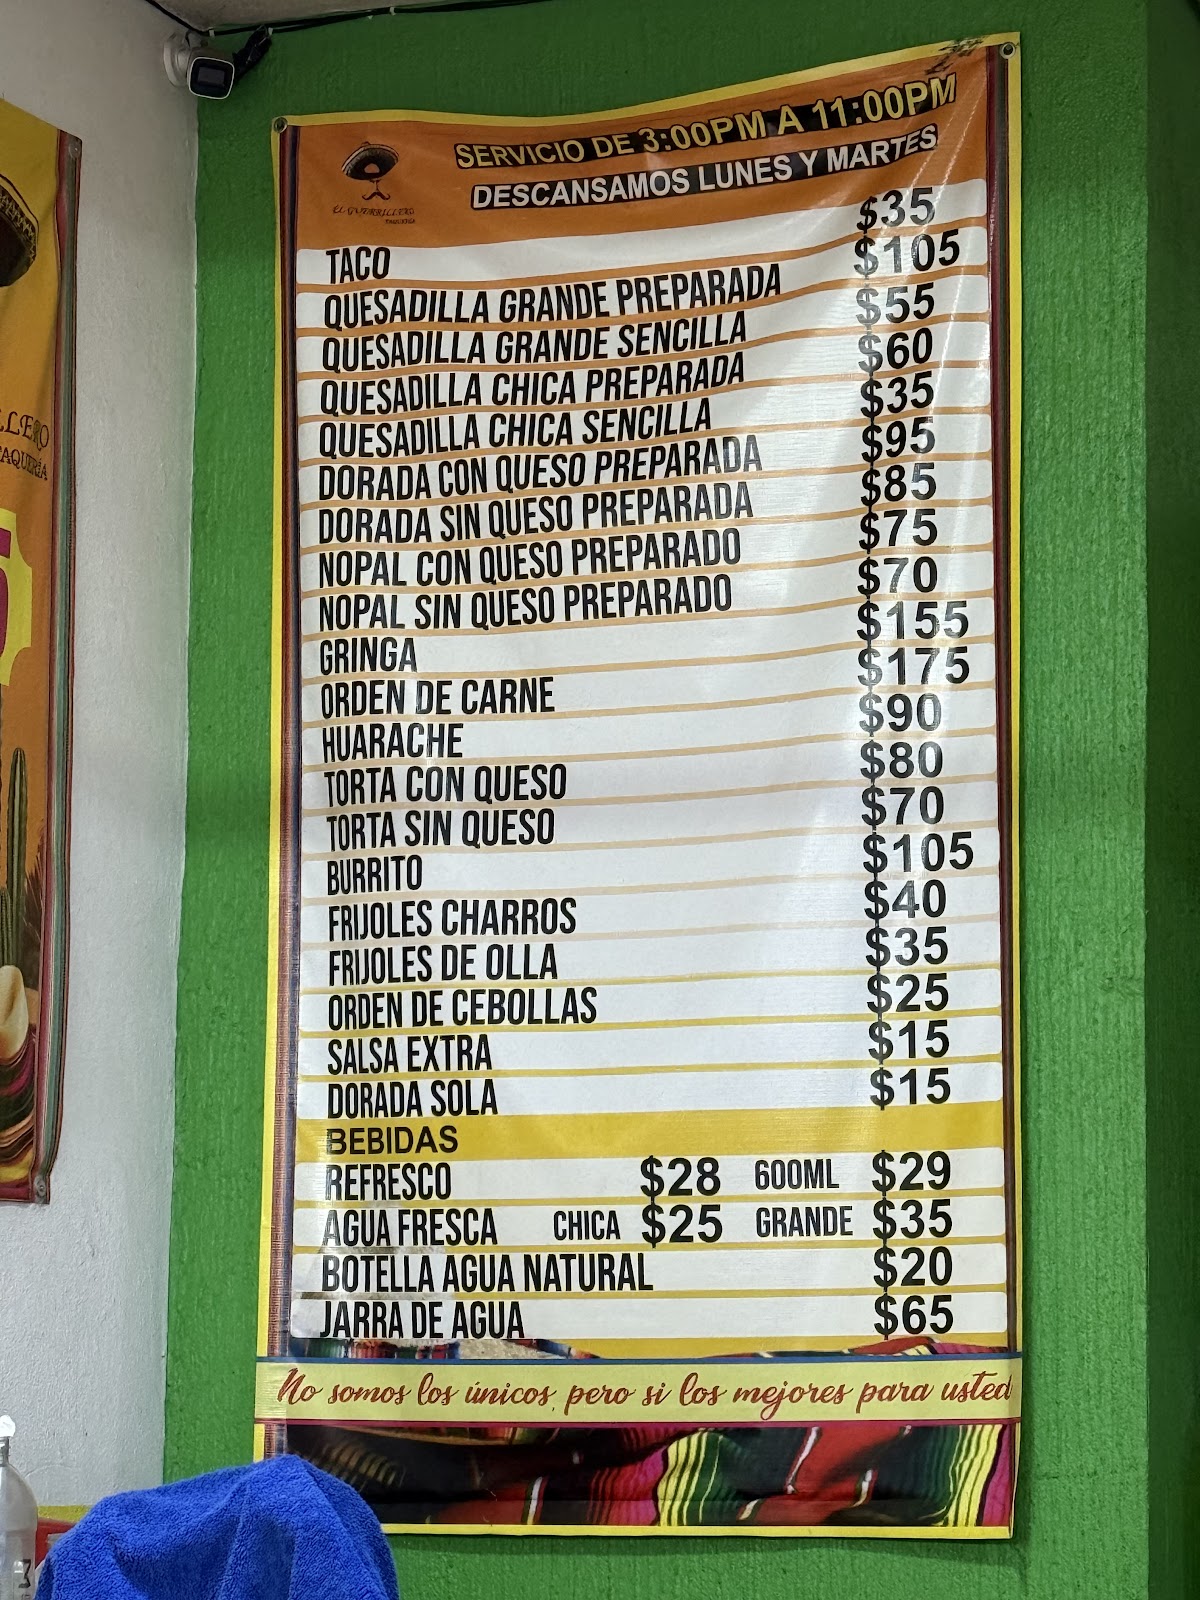 LLERO
TAQUERÍA
SERVICIO DE 3:00PM A 11:00PM
DESCANSAMOS LUNES Y MARTES
EL GUERRILLERO
TAQUERÍA
TACO $35
QUESADILLA GRANDE PREPARADA $105
QUESADILLA GRANDE SENCILLA $55
QUESADILLA CHICA PREPARADA $60
QUESADILLA CHICA SENCILLA $35
DORADA CON QUESO PREPARADA $95
DORADA SIN QUESO PREPARADA $85
NOPAL CON QUESO PREPARADO $75
NOPAL SIN QUESO PREPARADO $70
GRINGA $155
ORDEN DE CARNE $175
HUARACHE $90
TORTA CON QUESO $80
TORTA SIN QUESO $70
BURRITO $105
FRIJOLES CHARROS $40
FRIJOLES DE OLLA $35
ORDEN DE CEBOLLAS $25
SALSA EXTRA $15
DORADA SOLA $15
BEBIDAS
REFRESCO $28 600ML $29
AGUA FRESCA CHICA $25 GRANDE $35
BOTELLA AGUA NATURAL $20
JARRA DE AGUA $65
No somos los únicos, pero si los mejores para usted